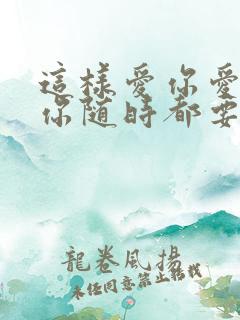 這樣愛你愛
你隨時都要
龍卷風揚
未经同意禁止转载